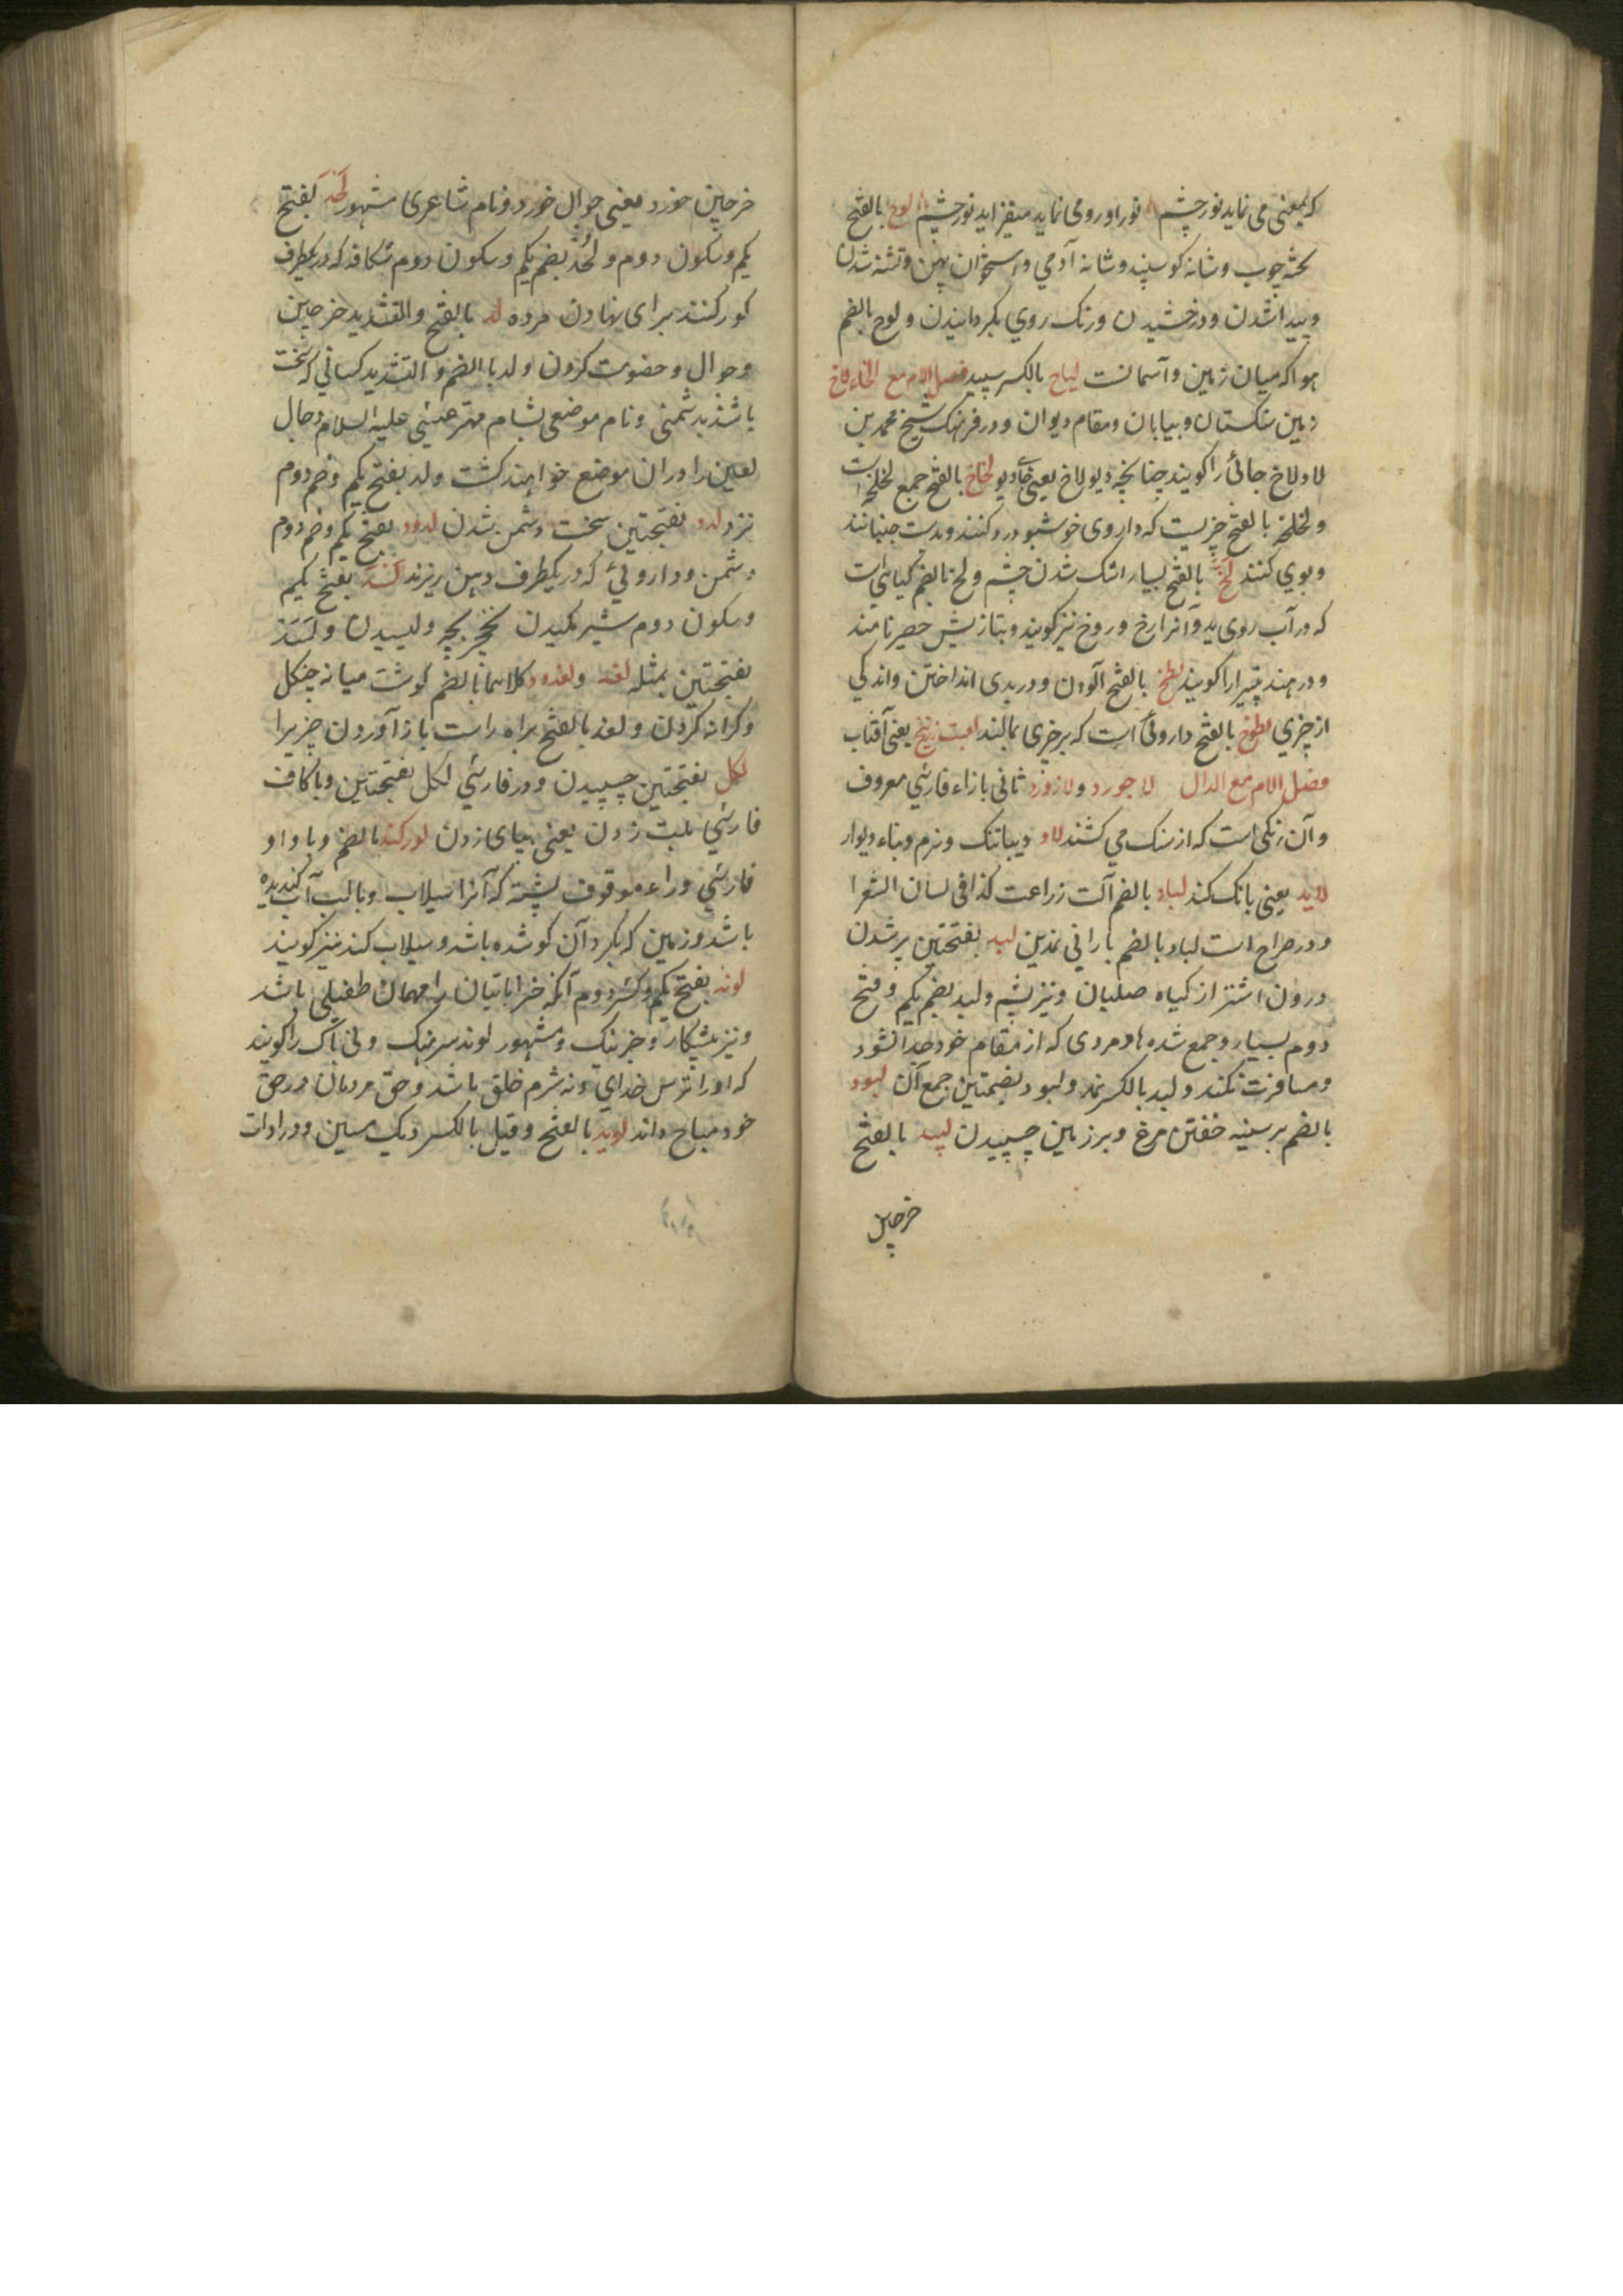 که بمعنی می نماید نور چشم تو را و رومی نماید میفزاید نور چشم لوح بالفتح
تخته چوب و شانه کوسپند و شانه آدمی و استخوان پهن و تشنه شدن
و پیدا شدن و درخشیدن و رنک روی بکردانیدن و لوح بالضم
هوا که میان زمین و آسمانست لیاح بالکسر سپید فصل اللام مع الخاء لاخ
زمین سنکستان و بیابان و مقام دیوان و در فرهنک شیخ محمد بن
لاد لاخ جائی را کویند چنانچه دیولاخ یعنی جای دیو لخاخ بالفتح جمع لخلخه است
و لخلخه بالفتح چیزیست که داروی خوشبو درو کنند و بدست جنبانند
و بوی کنند لخ بالفتح بسیار اشک شدن چشم و لخ بالضم کیاهی است
که در آب روی ید و آنرا رخ و روخ نیز کویند و بتازیش حصیر نامند
و در هند پتیرا را کویند لطخ بالفتح آلودن و در بدی انداختن و اندکی
از چیزی لطوخ بالفتح داروئی است که بر چیزی بمالند لعبت زرنیخ یعنی آفتاب
فصل اللام مع الدال لاجورد و لاژورد ثانی بازاء فارسی معروف
و آن رنکی است که از سنک می کشند لاد دیبا تنک و نرم و بناء دیوار
لاید یعنی بانک کند لباد بالضم آلت زراعت کذا فی لسان الشعرا
و در صراح است لباد بالضم بارانی نمدین لبد بفتحتین پر شدن
درون اشتر از کیاه صلیان و نیز پشم و لبد بضم یکم و فتح
دوم بسیار و جمع شده و مردی که از مقام خود جدا نشود
و مسافرت نکند و لبد بالکسر نمد و لبود بضمتین جمع آن لبود
بالضم بر سینه خفتن مرغ و بر زمین چسپیدن لبید بالفتح
خرجین
خرجین خورد یعنی جوال خورد و نام شاعری مشهور لحد بفتح
یکم و سکون دوم و لحد بضم یکم و سکون دوم شکافه که در یکطرف
کور کنند برای نهادن مرده لد بالفتح و التشدید خرجین
و جوال و خصومت کردن و لد بالضم و التشدید کسانی که سخت
باشند بدشمنی و نام موضعی بشام مهتر عیسی علیه السلام دجال
لعین را در ان موضع خواهند کشت و لد بفتح یکم و ضم دوم
نزد لدد بفتحتین سخت دشمن شدن لدود بفتح یکم و ضم دوم
دشمن و داروئی که در یکطرف دهن ریزند لسد بفتح یکم
و سکون دوم شیر مکیدن بچه و لیسیدن و لسد
بفتحتین بمثله لغد و لغدود کلاهما بالضم کوشت میانه چنکل
و کرانه کردن و لغد بالفتح براه راست باز آوردن چیزیرا
لکل بفتحتین چسپیدن و در فارسی لکل بفتحتین و باکاف
فارسی لت زدن یعنی بپای زدن لورکند بالضم و با واو
فارسی و راء موقوف پشته که آنرا سیلاب و یا لب آب کندیده
باشد و زمین که بکرد آن کو شده باشد و سیلاب کند نیز کویند
لوند بفتح یکم و کسر دوم آنکه خراباتیان را مهمان طفیلی باشد
و نیز پیشکار و و مشهور لوند سرهنک و لی باک را کویند
که او را ترس خدای و نه شرم خلق باشد و حق مردمان در حق
خود مباح داند لوید بالفتح و قیل بالکسر دیک مسین و در ادات